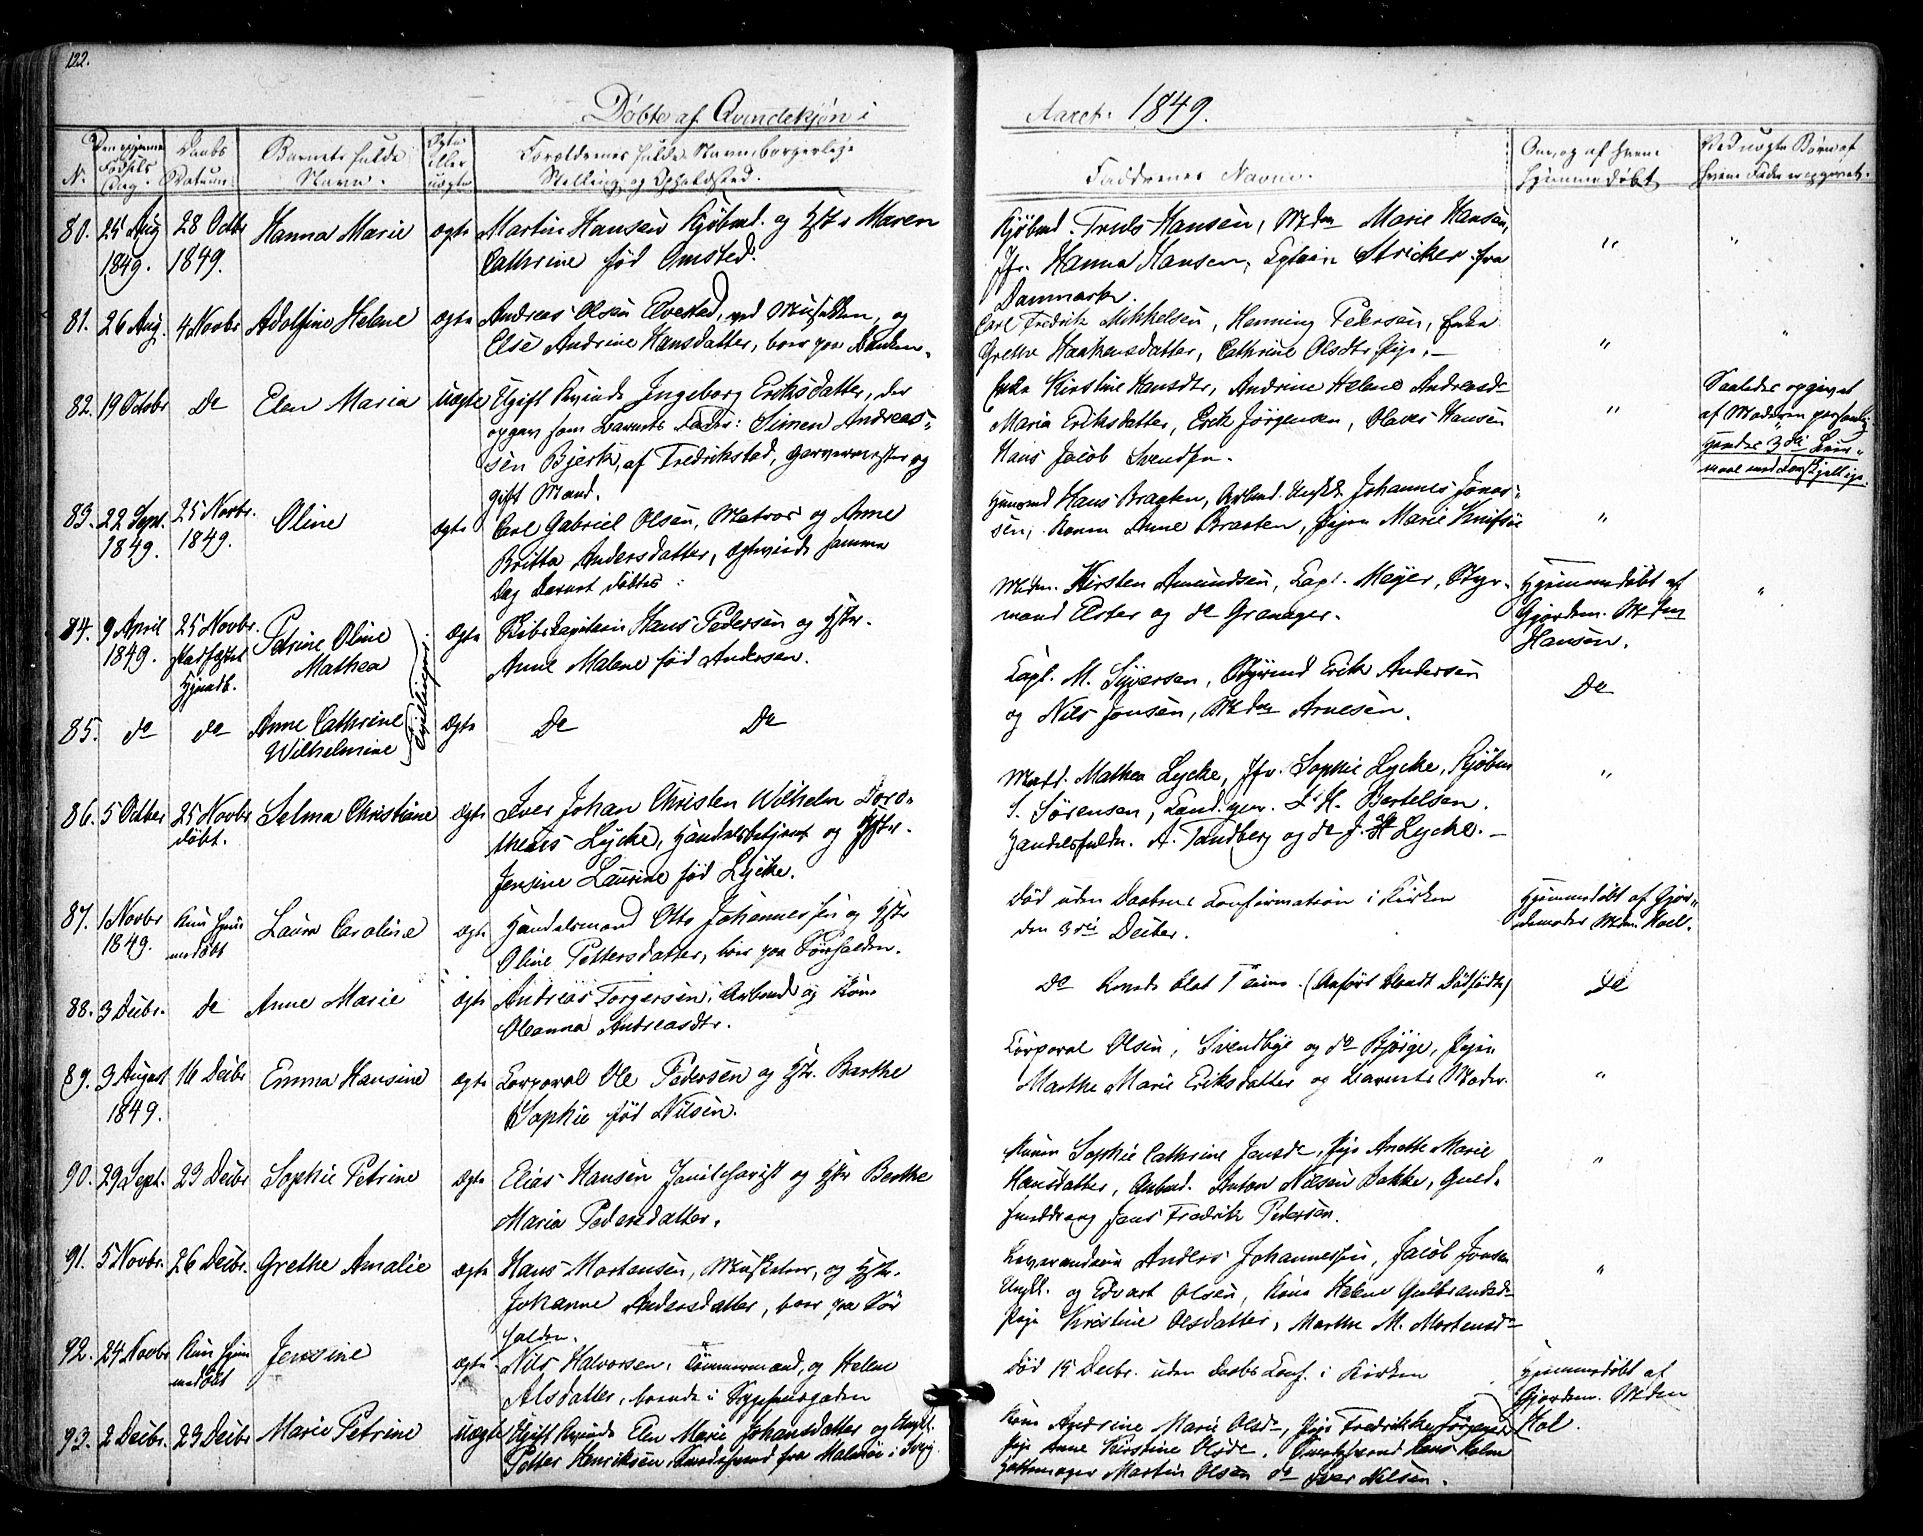 122.
Døbte af Qvindekjøn i
Aaret: 1849.
N.
Fødsels Dag.
Daabs Datum
Barnets fulde Navn.
Ægte eller uægte
Forældrenes fulde Navn, borgerlige Stilling og Opholdssted.
Faddrenes Navne.
Om, og af hvem hjemmedøbt
Ved uægte Børn af hvem Fader opgivet.
80. 25 Aug 1849. 28 Octbr 1849. Hanna Marie ægte Martin Hansen Kjøbmd. og Hstr Maren
Cathrine fød Omsted.
Kjøbmd. Truls Hansen, Mdm Marie Hansen,
Jfr. Hanna Hansen, Stricker fra
Danmark.
81. 26 Aug. 4 Novbr Adolfine Helene ægte Andreas Olsen Elvestad, og
Else Andrine Hansdatter, boer paa
Carl Fredrik Mikkelsen, Henning Pedersen, Enke
Grethe Haakensdatter, Cathrine Olsdtr Pige.
82. 19 Octobr Do Elen Maria uægte Ugift Qvinde Ingeborg Eriksdatter, der
opgav som Barnets Fader: Simen Andreas-
sen Bjerk, af Fredrikstad, Garvermester og
gift Mand.
Enke Kirstine Hansdtr, Andrine Helene Andreasdr
Maria Eriksdatter, Erik Jørgensen, Olaves Hansen
Hans Jacob Svendsen.
Saaledes opgivet
af Moderen personlig
83. 22 Sept. 1849. 25 Novbr. 1849. Oline ægte Carl Gabriel Olsen, Matros og Anne
Britta Andersdatter, ægteviede samme
Dag Barnet døbtes.
Hans Braaten, Johannes Jonas-
sen, Konen Anne Braaten, Pigen Marie
84. 9 April 1849. 25 Novbr. stadfæstet Hjemdb. Petrine Oline
Mathea
Tvillinger
ægte Skibskapitain Hans Pedersen og Hstr.
Anne Malene fød Andersen.
Mdm. Kirsten Amundsen, Capt. Meyer, Styr-
mand Elster og do Granager.
Hjemmedøbt af
Gjordem. Mdm
Hansen.
85. do do Anne Cathrine
Wilhelmine
ægte Do Do
Capt. M. Syversen, Styrmd Erik Andersen
og Nils Jonsen, Mdm Arnesen.
Do
86. 5 Octber 25 Novbr døbt. Selma Christiane ægte Iver Johan Christen Wilhelm Doro-
theus Lycke, Handelsbetjent og Hstr.
Jensine Laurine fød Lycke.
Mad. Mathea Lycke, Jfr. Sophie Lycke, Kjøbm
S. Sørensen, Bertelsen.
A. Tandberg og do J. Lycke.
87. 1 Novbr 1849. Kun hjem-
medøbt Laura Caroline ægte Handelsmand Otto Johannessen og Hstr
Oline Pettersdatter, boer paa Sørhalden.
Død uden Daabens Confirmation i Kirken
den 3die Decber.
Hjemmedøbt af Gjor-
demoder Mdm. Hoel.
88. 3 Decbr. Do Anne Marie ægte Andreas Torgersen, Arbmd og Kone
Oleanna Andreasdtr.
Do (Anført blandt Dødfødte)
Do
89. 3 August 1849. 16 Decbr Emma Hansine ægte Corporal Ole Pedersen og Hstr. Barthe
Sophie fød Nilsen.
Corporal Olsen, Svendbye og do Bjørge, Pigen
Marthe Marie Eriksdatter og Barnets Moder.
90. 29 Sept. 23 Decbr Sophie Petrine ægte Elias Hansen og Hstr Berthe
Maria Pedersdatter.
Konen Sophie Cathrine Jensdr, Pige Anette Marie
Hansdatter, Arbmd. Anton Nilsen Bakke, Guld-
smeddreng Jens Fredrik Pedersen.
91. 5 Novbr. 26 Decbr. Grethe Amalie ægte Hans Mortensen, Musketeer, og Hstr.
Johanne Andersdatter, boer paa Sør
halden.
Anders Johannessen, Jacob Jonsen
Ungkl. og Edvart Olsen, Kone Helene Gulbrandsdr
Pige Kirstine Olsdatter, Marthe M. Mortensdr
92. 24 Novbr Kun hjem
medøbt Jensine ægte Nils Halvorsen, Tømmermand, og Helene
Alsdatter, boende i
Død 15 Decbr. uden Daabs Conf. i Kirken
Hjemmedøbt af
Gjordem. Mdm
Hol.
93. 2 Decbr. 23 Decbr Marie Petrine uægte Ugift Qvinde Elen Marie Johansdatter og Ungkl.
Petter Henriksen, fra Malmøe i Sverig.
Kone Andrine Marie Olsdr, Pige Fredrikke Jørgensd
Pige Anne Kirstine Olsdr, Hans Holm
Martin Olsen do Iver Nilsen.